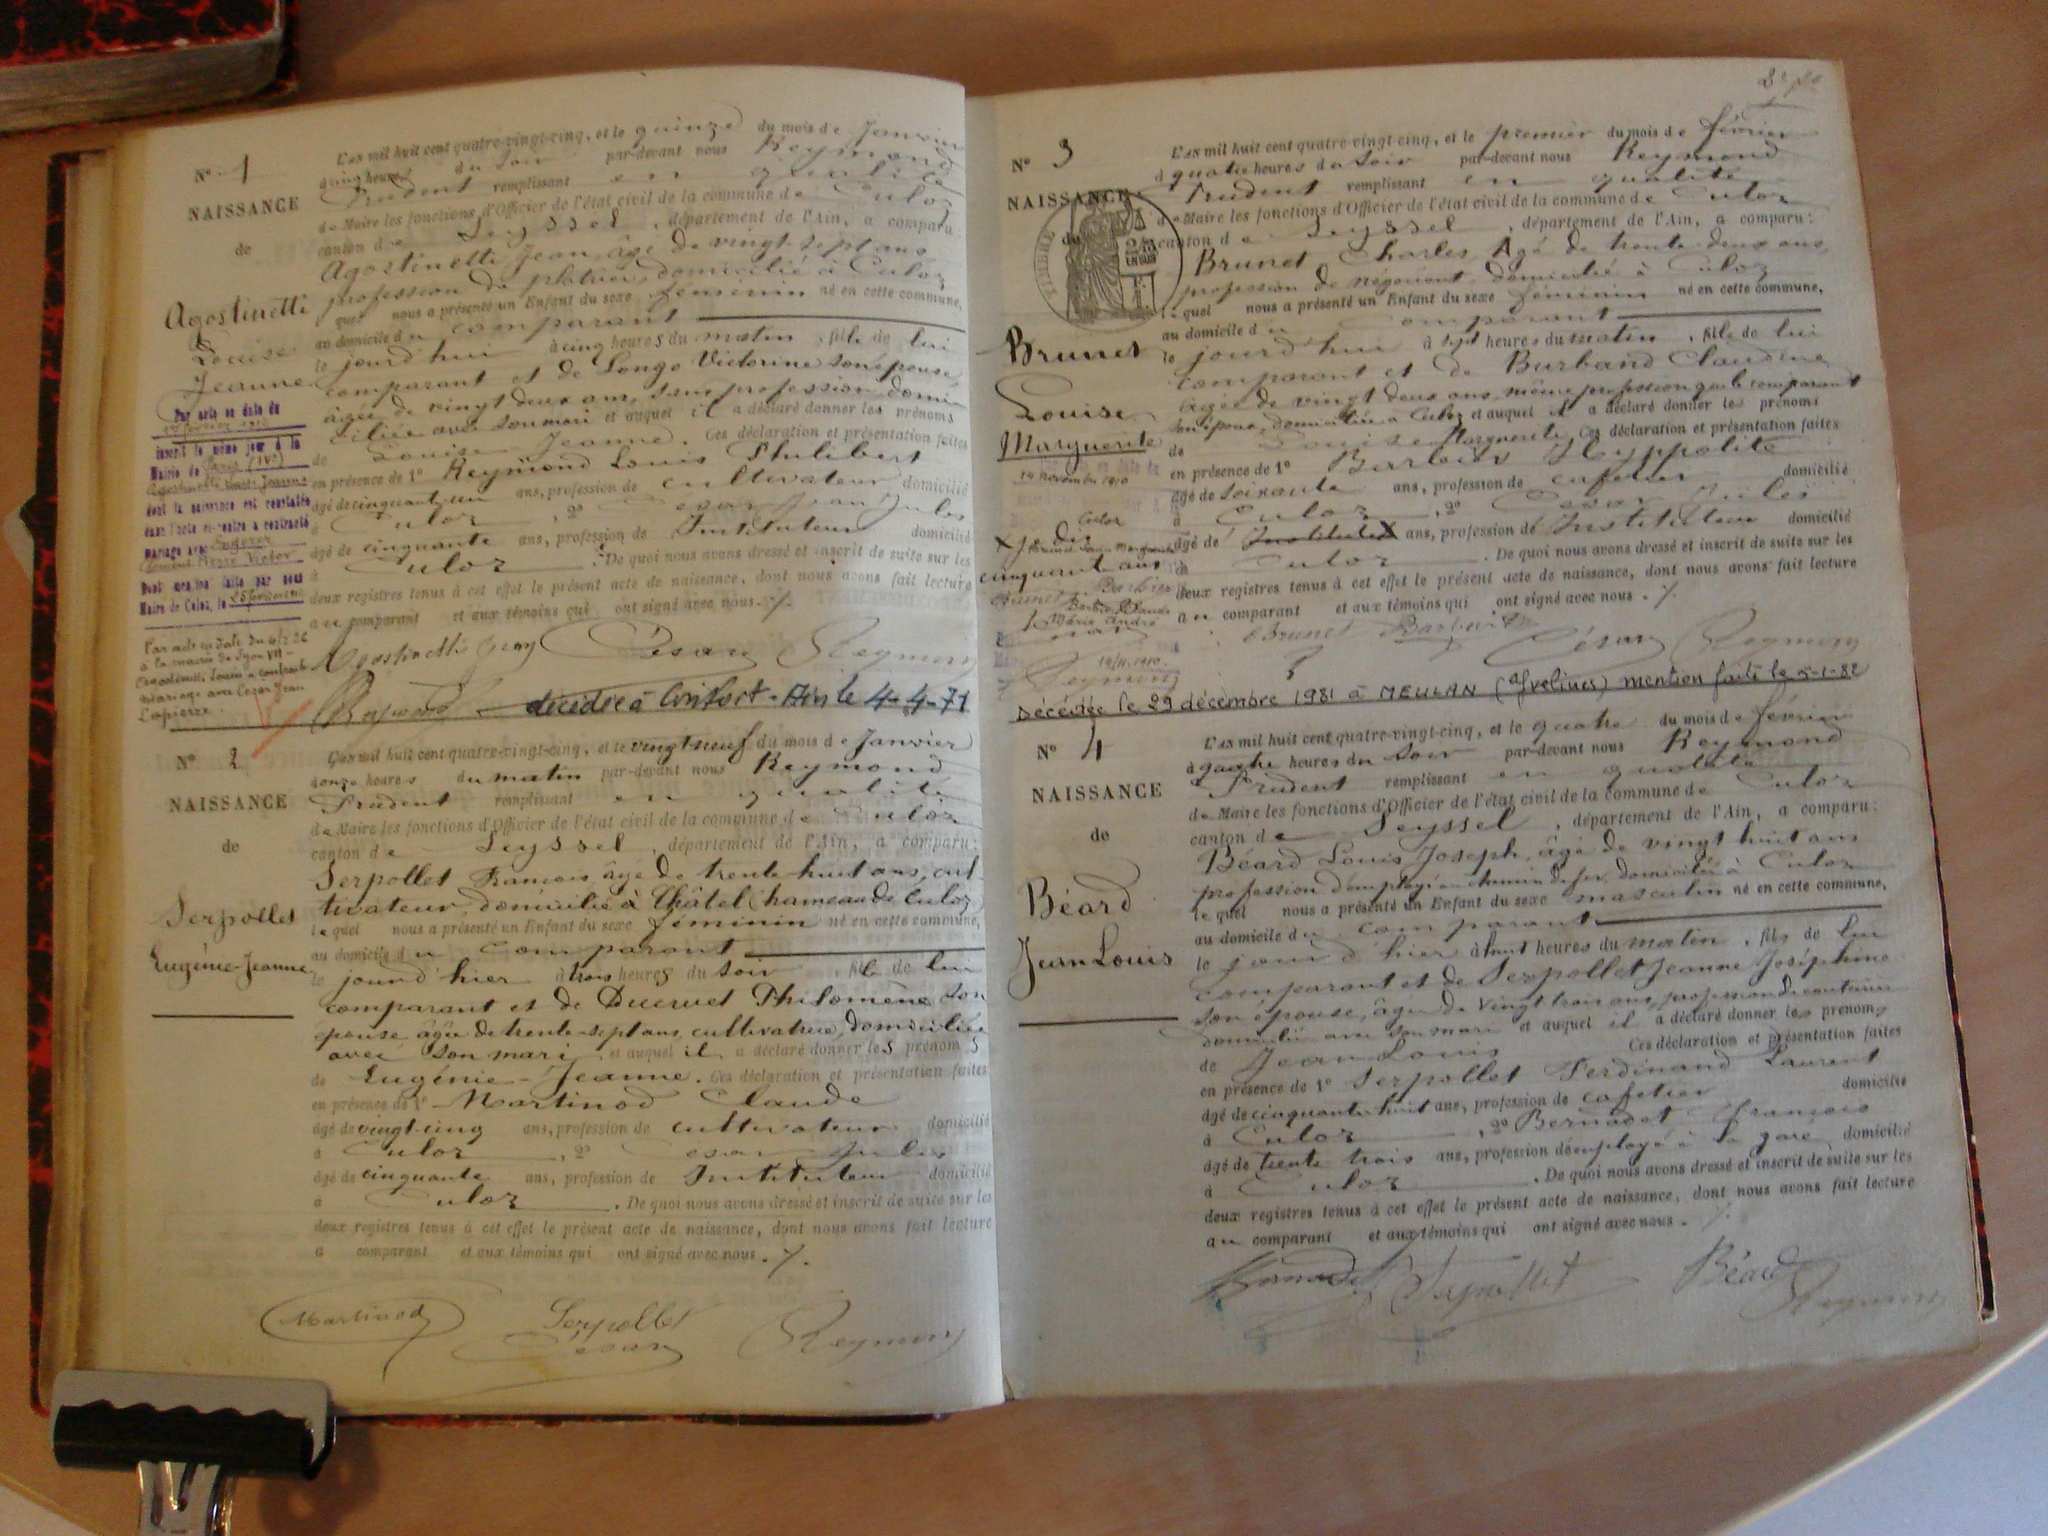 N° 1
NAISSANCE
de
Agostinetti
Louise
Jeanne
Par acte en date du
inscrit le même jour à la
Mairie de Paris
dont la naissance est constatée
dans l'acte ci-contre a contracté
mariage avec
Pierre Victor
Dont mention faite par nous
Maire de Culoz, le
Par acte en date du
à la mairie de Lyon VII
a contracté
mariage avec Cezar Jean
Lapierre
L'an mil huit cent quatre-vingt-cinq, et le quinze du mois de Janvier
à cinq heures du soir par-devant nous Reymond
Prudent remplissant en qualité
de Maire les fonctions d'Officier de l'état civil de la commune de Culoz
canton de Seyssel, département de l'Ain, a comparu:
Agostinetti Jean, âgé de vingt-sept ans,
profession de plâtrier, domicilié à Culoz
quel nous a présenté un Enfant du sexe féminin né en cette commune,
au domicile du comparant
le jourd'hui à cinq heures du matin, fille de lui
comparant et de Longo Victorine son épouse,
âgée de vingt deux ans, sans profession, domi-
ciliée avec son mari et auquel il a déclaré donner les prénoms
de Louise Jeanne. Ces déclaration et présentation faites
en présence de 1° Reymond Louis Philibert
âgé de cinquante un ans, profession de cultivateur domicilié
à Culoz, 2° César Jean Jules
âgé de cinquante ans, profession de Instituteur domicilié
à Culoz. De quoi nous avons dressé et inscrit de suite sur les
deux registres tenus à cet effet le présent acte de naissance, dont nous avons fait lecture
au comparant et aux témoins qui ont signé avec nous. ./.
Agostinetti Jean César Reymond
Reymond décédée à Confort - Ain le 4-4-71
N° 2
NAISSANCE
de
Serpollet
Eugénie-Jeanne
L'an mil huit cent quatre-vingt-cinq, et le vingt-neuf du mois de Janvier
à onze heures du matin par-devant nous Reymond
Prudent remplissant en qualité
de Maire les fonctions d'Officier de l'état civil de la commune de Culoz
canton de Seyssel, département de l'Ain, a comparu:
Serpollet François, âgé de trente-huit ans, cul-
tivateur, domicilié à Châtel (hameau de Culoz)
lequel nous a présenté un Enfant du sexe féminin né en cette commune,
au domicile du comparant
le jourd'hier à trois heures du soir, fille de lui
comparant et de Ducruet Philomène son
épouse âgée de trente-sept ans, cultivatrice, domiciliée
avec son mari et auquel il a déclaré donner les prénoms
de Eugénie-Jeanne. Ces déclaration et présentation faites
en présence de 1° Martinod Claude
âgé de vingt-cinq ans, profession de cultivateur domicilié
à Culoz, 2° César Jules
âgé de cinquante ans, profession de Instituteur domicilié
à Culoz. De quoi nous avons dressé et inscrit de suite sur les
deux registres tenus à cet effet le présent acte de naissance, dont nous avons fait lecture
a comparant et aux témoins qui ont signé avec nous. ./.
Martinod Serpollet
César Reymond
N° 3
NAISSANCE
de
TIMBRE
Brunet
Louise
Marguerite
19 novembre 1910
Culoz
X Je dis
cinquante ans
Brunet Barbier
L'an mil huit cent quatre-vingt-cinq, et le premier du mois de février
à quatre heures du soir par-devant nous Reymond
Prudent remplissant en qualité
de Maire les fonctions d'Officier de l'état civil de la commune de Culoz
canton de Seyssel, département de l'Ain, a comparu:
Brunet Charles, Agé de trente-deux ans,
profession de négociant, domicilié à Culoz
lequel nous a présenté un Enfant du sexe féminin né en cette commune,
au domicile du comparant
le jourd'hui à sept heures du matin, fille de lui
comparant et de Burband Claudine
âgée de vingt deux ans, même profession que le comparant
son épouse, domiciliée à Culoz et auquel il a déclaré donner les prénoms
de Louise Marguerite. Ces déclaration et présentation faites
en présence de 1° Barbier Hyppolite
âgé de soixante ans, profession de cafetier domicilié
à Culoz, 2° César Jules
âgé de Instituteur X ans, profession de Instituteur domicilié
à Culoz. De quoi nous avons dressé et inscrit de suite sur les
deux registres tenus à cet effet le présent acte de naissance, dont nous avons fait lecture
au comparant et aux témoins qui ont signé avec nous. ./.
Brunet Barbier César Reymond
Décédée le 29 décembre 1981 à MEULAN (Yvelines) mention faite le 5-1-82
N° 4
NAISSANCE
de
Béard
Jean Louis
L'an mil huit cent quatre-vingt-cinq, et le quatre du mois de février
à quatre heures du soir par-devant nous Reymond
Prudent remplissant en qualité
de Maire les fonctions d'Officier de l'état civil de la commune de Culoz
canton de Seyssel, département de l'Ain, a comparu:
Béard Louis Joseph, âgé de vingt huit ans
profession d'employé au chemin de fer, domicilié à Culoz
lequel nous a présenté un Enfant du sexe masculin né en cette commune,
au domicile du comparant
le jour d'hier à huit heures du matin, fils de lui
comparant et de Serpollet Jeanne Joséphine
son épouse, âgée de vingt trois ans, profession de couturière
domiciliée avec son mari et auquel il a déclaré donner les prénoms
de Jean Louis Ces déclaration et présentation faites
en présence de 1° Serpollet Ferdinand Laurent
âgé de cinquante huit ans, profession de cafetier domicilié
à Culoz, 2° Bernadet François
âgé de trente trois ans, profession d'employé à la gare domicilié
à Culoz. De quoi nous avons dressé et inscrit de suite sur les
deux registres tenus à cet effet le présent acte de naissance, dont nous avons fait lecture
au comparant et aux témoins qui ont signé avec nous. ./.
Bernadet Serpollet Béard
Reymond